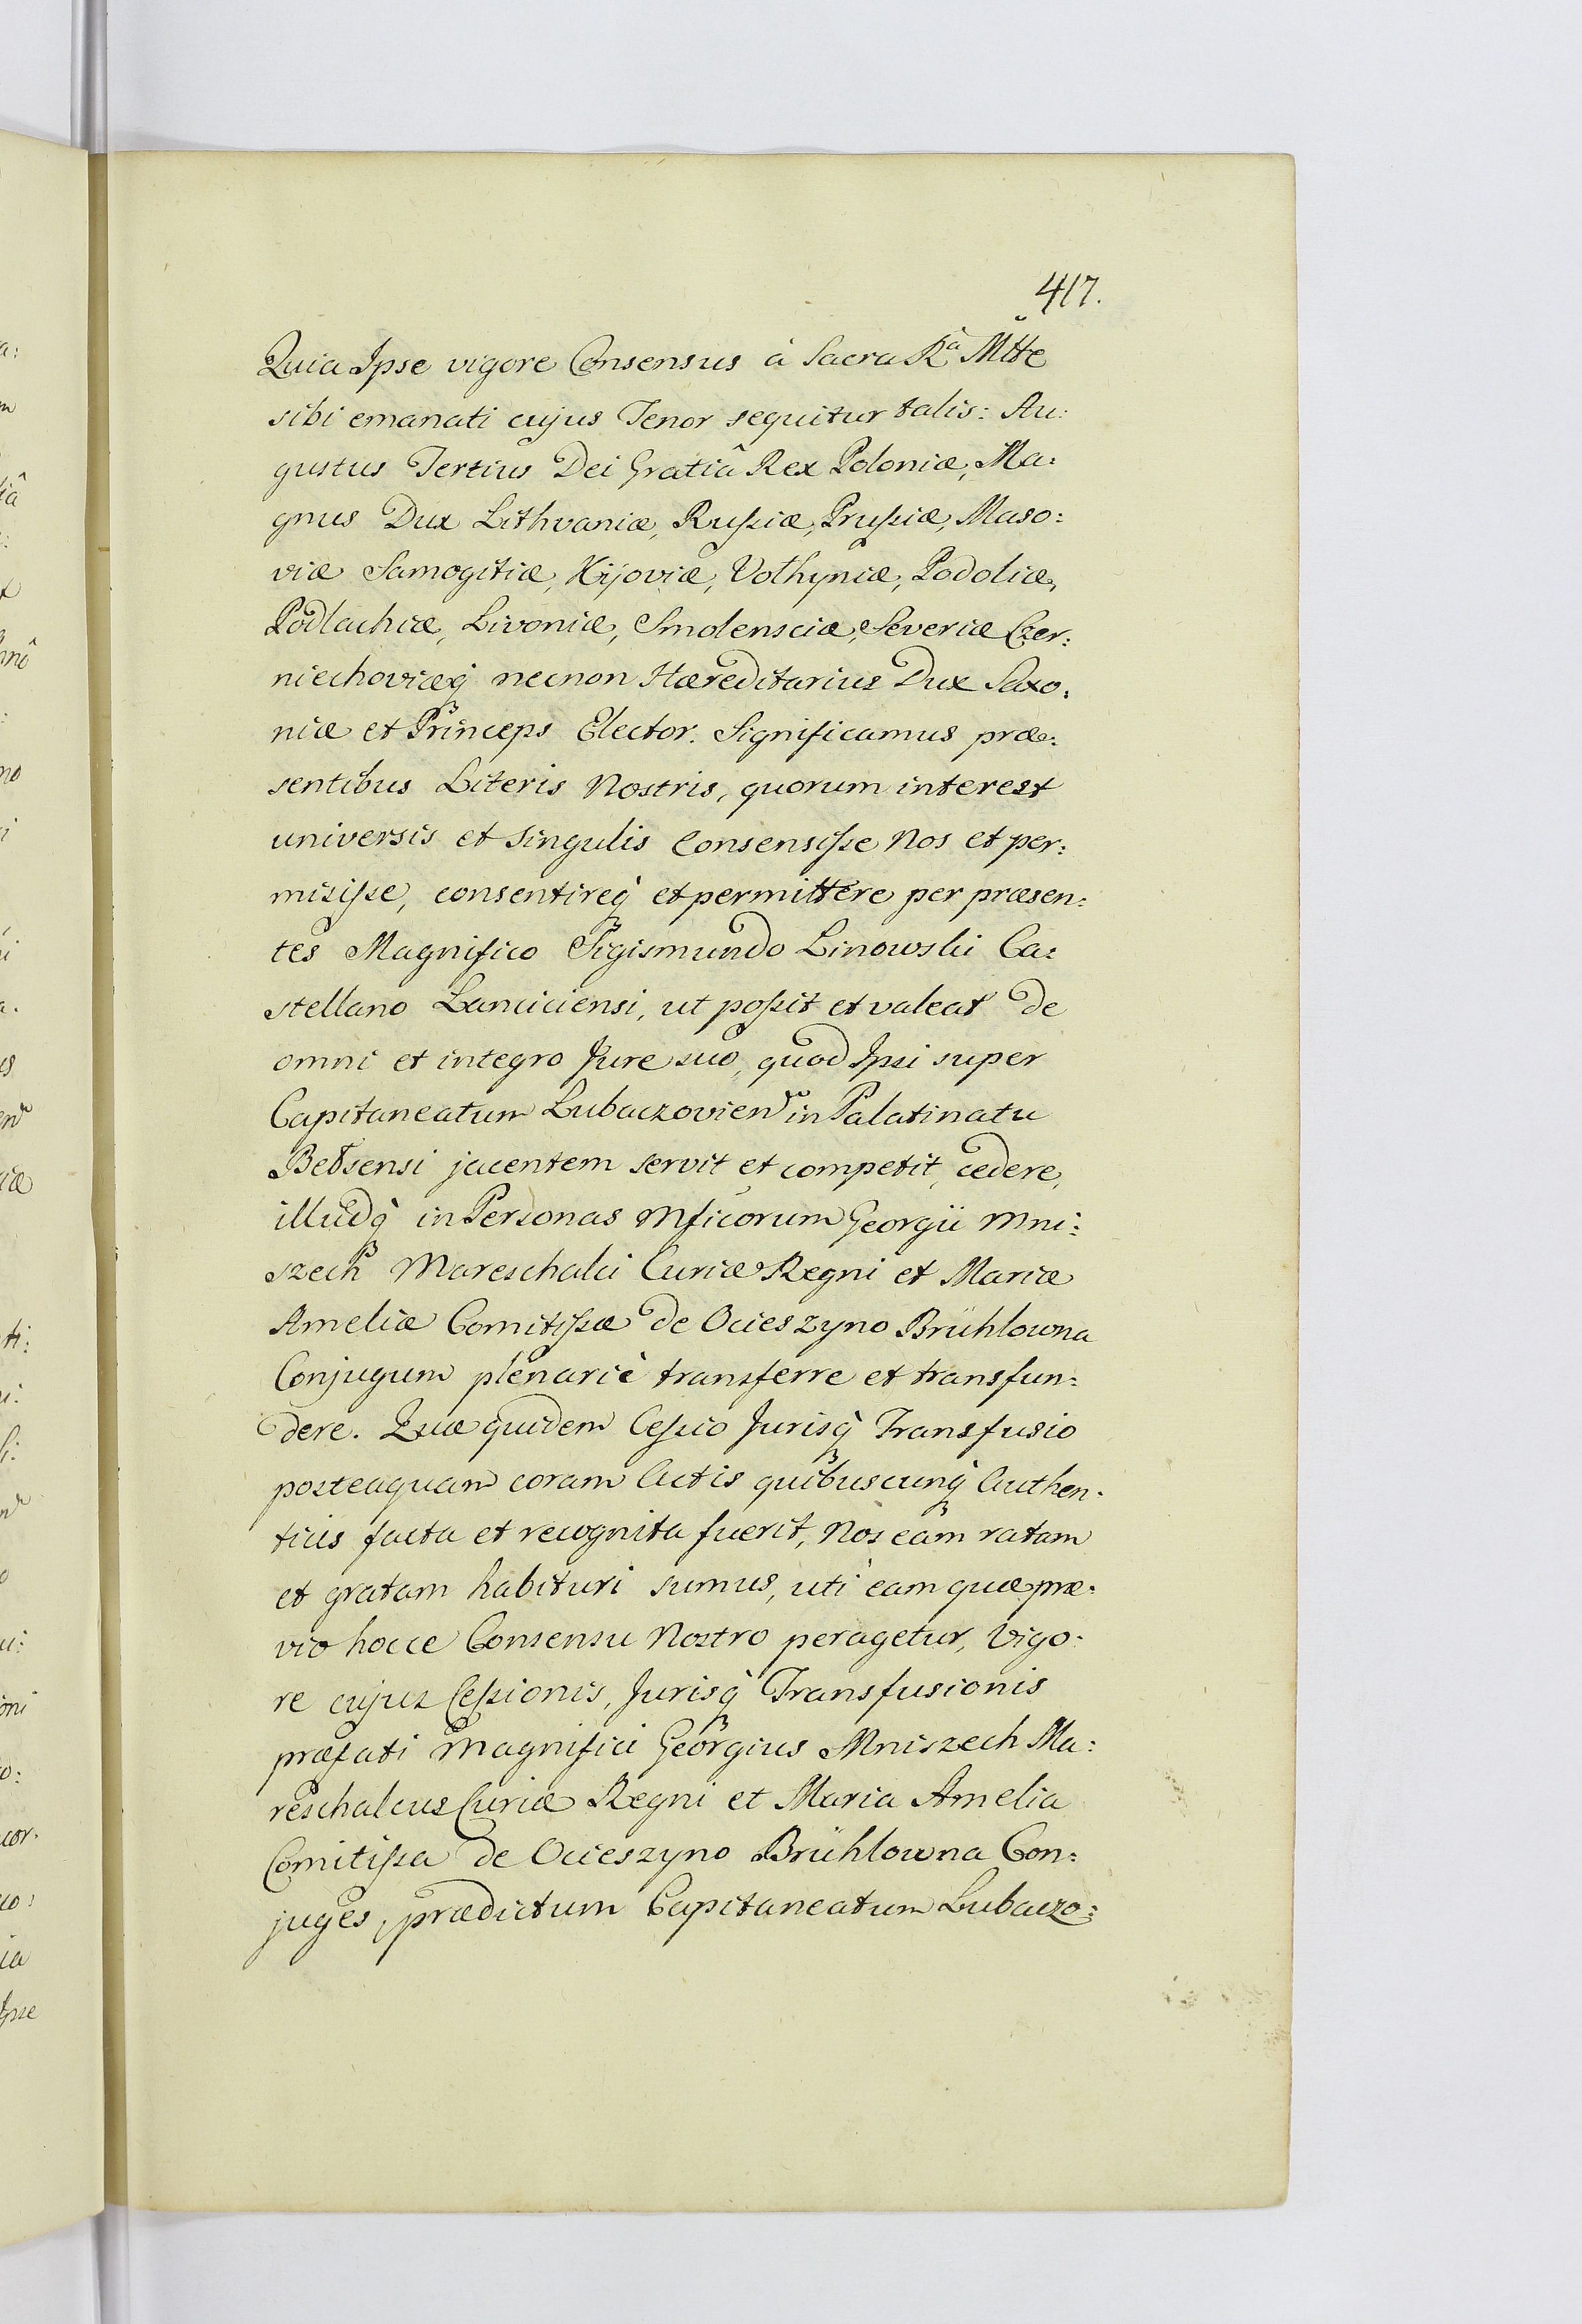 417.
Quia Ipse vigore Consensus à Sacra Rª Mtte
sibi emanati cujus Tenor sequitur talis: Au:
gustus Tertius Dei Gratiâ Rex Poloniæ, Ma:
gnus Dux Lithvaniæ, Rußiæ, Prußiæ, Maso:
viæ Samogitiæ, Kijoviæ, Volhyniæ, Podoliæ,
Podlachiæ, Livoniæ, Smolensciæ, Severiæ Czer:
niechoviæq̀ necnon Hæreditarius Dux Saxo:
niæ et Princeps Elector. Significamus præ:
sentibus Literis Nostris, quorum interest
universis et singulis Consensiße Nos et per:
misiße, consentireq̀ et permittere per præsen:
tes Magnifico Sigismundo Linowski Ca:
stellano Lanciciensi, ut poßit et valeat de
omni et integro Jure suo, quod Ipsi super
Capitaneatum Lubaczovien̄ in Palatinatu
Bełsensi jacentem servit et competit, cedere,
illudq̀ in Personas Mficorum Georgii Mni:
szech Mareschalci Curiæ Regni et Mariæ
Ameliæ Comitißæ de Ocieszyno Brühlowna
Conjugum plenariè transferre et transfun:
dere. Quæ quidem Ceßio Jurisq̀ Transfusio
posteaquam coram Actis quibuscunq̀ Authen:
ticis facta et recognita fuerit, Nos eam ratam
et gratam habituri sumus, uti eam quæ præ:
vio hocce Consensu Nostro peragetur, Vigo:
re cujus Ceßionis, Jurisq̀ Transfusionis
præfati Magnifici Georgius Mniszech Ma:
reschalcus Curiæ Regni et Maria Amelia
Comitißa de Ocieszyno Brühlowna Con:
juges, prædictum Capitaneatum Lubaczo: